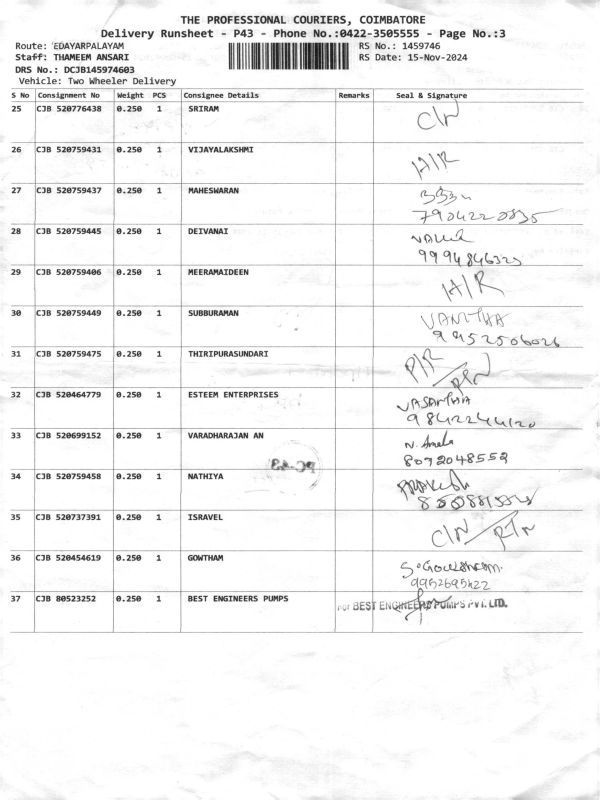 THE PROFESSIONAL COURIERS, COIMBATORE
Delivery Runsheet - P43 - Phone No.:0422-3505555 - Page No.:3
Route: EDAYARPALAYAM RS No.: 1459746
Staff: THAMEEM ANSARI RS Date: 15-Nov-2024
DRS No.: DCJB145974603
Vehicle: Two Wheeler Delivery
S No Consignment No Weight PCS Consignee Details Remarks Seal & Signature
25 CJB 520776438 0.250 1 SRIRAM C/N
26 CJB 520759431 0.250 1 VIJAYALAKSHMI H/R
27 CJB 520759437 0.250 1 MAHESWARAN
7904220835
28 CJB 520759445 0.250 1 DEIVANAI
29 CJB 520759406 0.250 1 MEERAMAIDEEN H/R
30 CJB 520759449 0.250 1 SUBBURAMAN VANITHA
9952506026
31 CJB 520759475 0.250 1 THIRIPURASUNDARI P/R
32 CJB 520464779 0.250 1 ESTEEM ENTERPRISES VASANTHA
9842244120
33 CJB 520699152 0.250 1 VARADHARAJAN AN
8072048552
34 CJB 520759458 0.250 1 NATHIYA
35 CJB 520737391 0.250 1 ISRAVEL C/N
36 CJB 520454619 0.250 1 GOWTHAM
9952695422
37 CJB 80523252 0.250 1 BEST ENGINEERS PUMPS For BEST ENGINEERS PUMPS PVT. LTD.